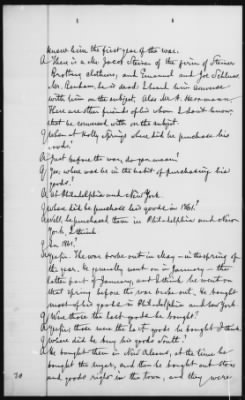 knew him the first year of the war.
A There is a Mr. Jacob Steiner of the firm of Steiner
Brothers, clothiers, and Emanuel and Joe Schloss
Mr. Benham, he is dead. I heard him converse
with him on the subject. Also Mr. A. Herrmann.
There are other friends of his whom I don't know,
that he conversed with on the subject.
Q When at Holly Springs where did he purchase his
goods?
A Just before the war, do you mean?
Q Yes, when was he in the habit of purchasing his
goods?
A At Philadelphia and New York.
Q Where did he purchase his goods in 1861?
A Well, he purchased them in Philadelphia and New
York, I think.
Q In 1861?
A Yes sir. The war broke out in May – in the spring of
the year. He generally went on in January – the
latter part of January, and I think he went on
that spring before the war broke out. He bought
most of his goods in Philadelphia and New York
Q Were those the last goods he bought?
A Yes sir, those were the last goods he bought I think.
Q Where did he buy his goods South?
A He bought them in New Orleans, at the time he
bought the sugar, and then he bought out stores
and goods right in the town, and they were